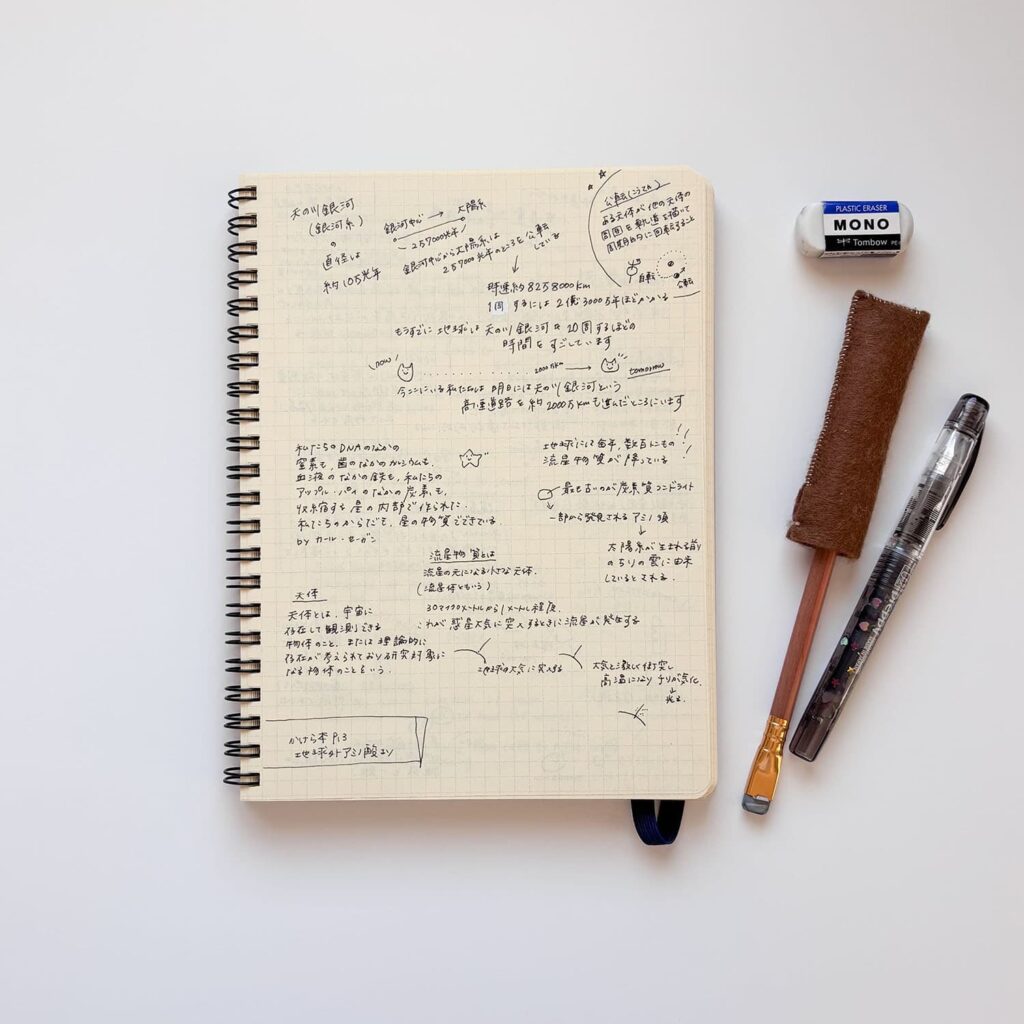 天の川銀河
(銀河系)
の
直径は
約10万光年
銀河中心 → 太陽系
257000光年
銀河中心から太陽系は
257000光年のところを公転
している
公転(こうてん)
ある天体が他の天体の
周囲を軌道を描いて
周期的に回転すること
自転
公転
時速約8258000km
1周するには2億3000万年ほどかかる
もうすでに地球は天の川銀河を20周するほどの
時間をすごしています
now
2000万km
tomorrow
今ここにいる私たちは明日には天の川銀河という
高速道路を約2000万kmも進んだところにいます
私たちのDNAのなかの
窒素も、歯のなかのカルシウムも、
血液のなかの鉄も、私たちの
アップル・パイのなかの炭素も、
収縮する星の内部で作られた.
私たちのからだも、星の物質でできている.
by カール・セーガン
地球には毎年、数百トンもの!!
流星物質が降っている
最も古いのが炭素質コンドライト
一部から発見されるアミノ酸
太陽系が生まれる前
のちりの雲に由来
しているとされる.
流星物質とは
流星の元になる小さな天体.
(流星体ともいう)
30マイクロメートルから1メートル程度.
これが惑星大気に突入するときに流星が発生する
地球の大気に突入する
大気と激しく衝突し
高温になりチリが気化.
発光.
天体
天体とは、宇宙に
存在して観測できる
物体のこと、または理論的に
存在が考えられており研究対象に
なる物体のことをいう.
かけら本 P13
地球外アミノ酸より
PLASTIC ERASER
MONO
Tombow PE
Preppy